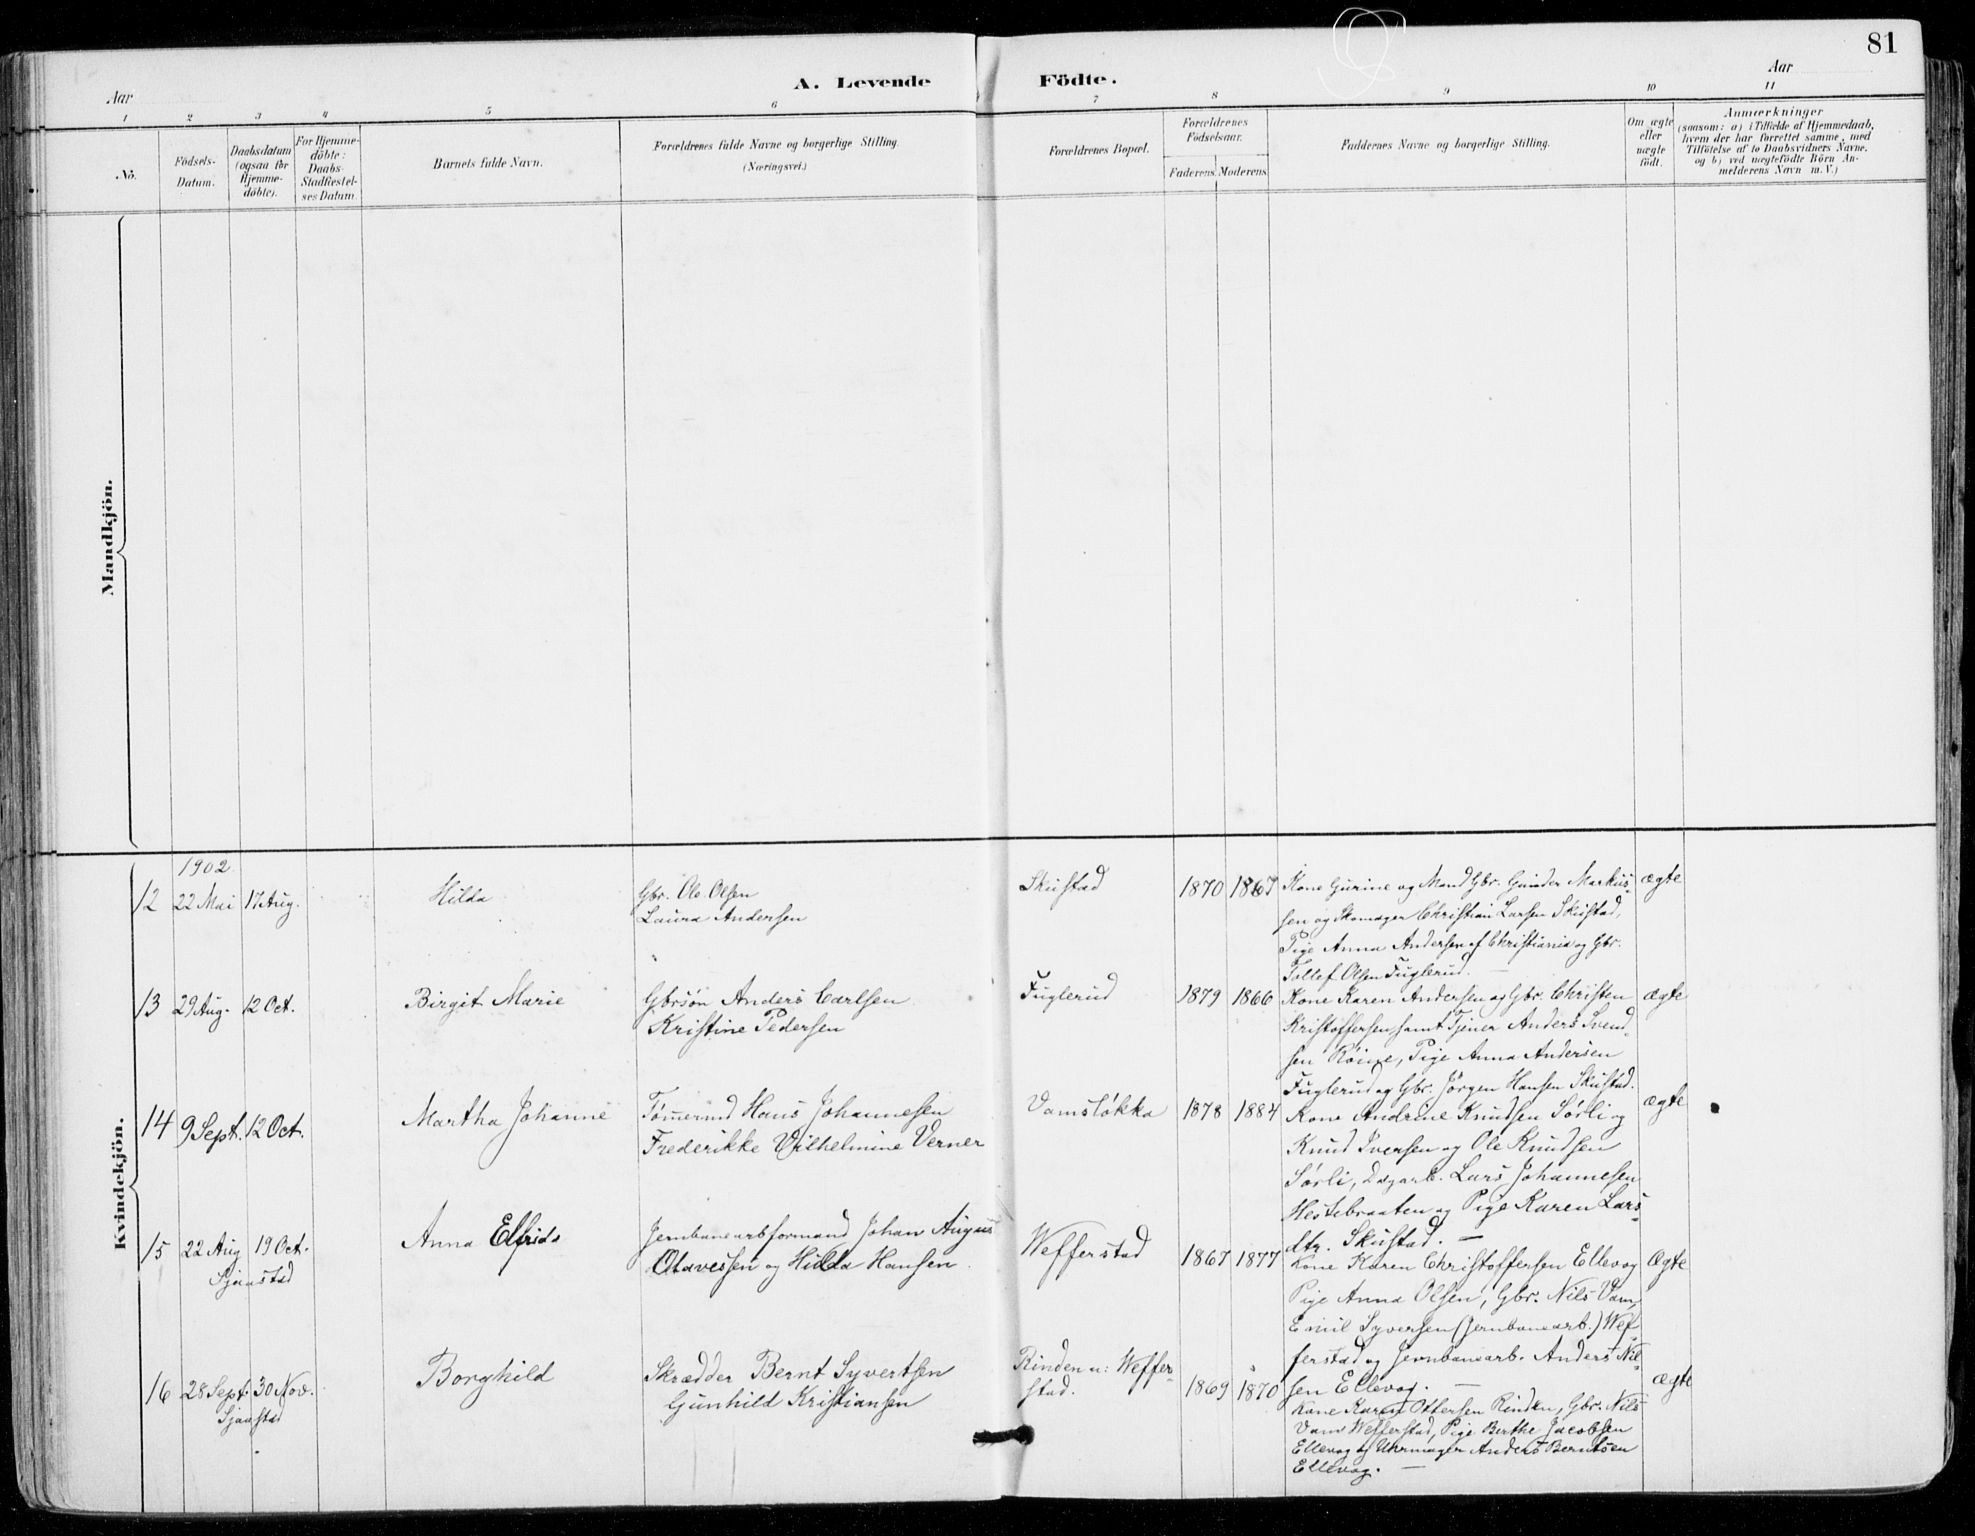 81
Aar
A. Levende Födte.
Aar
1 2 3 4 5 6 7 8 9 10 11
No.
Födsels-
Datum.
Daabsdatum
(ogsaa for
Hjemme-
döbte).
For Hjemme-
döbte:
Daabs-
Stadfæstel-
ses Datum.
Barnets fulde Navn.
Forældrenes fulde Navne og borgerlige Stilling.
(Næringsvei.)
Forældrenes Bopæl.
Forældrenes
Födselsaar.
Faderens. Moderens.
Faddernes Navne og borgerlige Stilling.
Om ægte
eller
uægte
födt.
Anmærkninger
(saasom: a) i Tilfælde af Hjemmedaab,
hvem der har forrettet samme, med
Tilföielse af to Daabsvidners Navne,
og b) ved uægtefödte Börn An-
melderens Navn m. V.)
Mandkjön.
Kvindekjön.
1902
12 22 Mai 17 Aug.
Hilda
Gbr. Ole Olsen
Laura Andersen
Skustad
1870 1867
Kone Gurine og Mand Gbr. Gunder Markus-
sen og Skomager Christian Larsen Skustad,
Pige Anna Andersen af Christiania og Gbr.
Tollef Olsen Fuglerud. —
ægte
13 29 Aug. 12 Oct.
Birgit Marie
Gbrsøn Anders Carlsen
Kristine Pedersen
Fuglerud
1879 1866
Kone Karen Andersen og Gbr. Christen
Kristoffersen samt Tjener Anders Svend-
sen Röine, Pige Anna Andersen
Fuglerud og Gbr. Jörgen Hansen Skustad.
ægte
14 9 Sept. 12 Oct.
Martha Johanne
Tømmermd Hans Johannesen
Frederikke Vilhelmine Verner
Vamsløkka
1878 1884
Kone Andrine Knudsen Sørli og
Knud Iversen og Ole Knudsen
Sørli, Dagarb. Lars Johannesen
Hestebraaten og Pige Karen Lars-
dtr. Skustad. —
ægte
15 22 Aug 19 Oct.
Sjaastad
Anna Elfrida
Jernbanearbformand Johan August
Olavessen og Hilda Hansen.
Wefferstad
1867 1877
Kone Karen Christoffersen Ellevog
Pige Anna Olsen, Gbr. Nils Vam,
Emil Syversen (Jernbanearb.) Wef
ferstad og Jernbanearb. Anders Nil-
sen Ellevog. —
Ægte
16 28 Sept. 30 Nov.
Sjaastad
Borghild
Skrædder Bernt Syvertsen
Gunhild Kristiansen
Rinden u: Weffer-
stad.
1869 1870
Kone Karen Ottersen Rinden, Gbr. Nils
Vam Wefferstad, Pige Berthe Jacobsen
Ellevog og Uhrmager Anders Berntsen
Ellevog. —
ægte